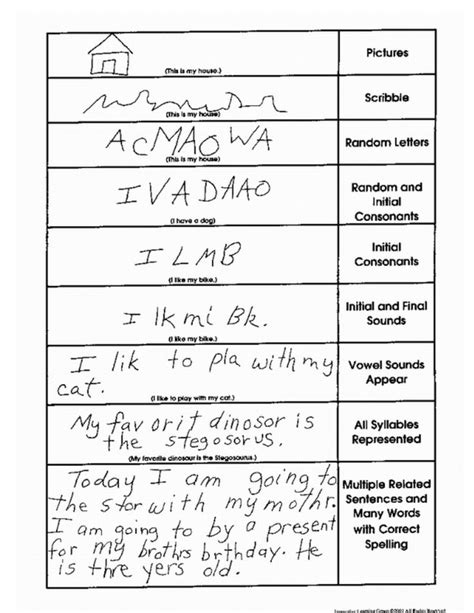 (This is my house.)
Pictures
(This is my house)
Scribble
ACMAOWA
(This is my house)
Random Letters
IVADAAO
(I have a dog)
Random and
Initial
Consonants
I LMB
(I like my bike.)
Initial
Consonants
I lk mi Bk.
(I like my bike.)
Initial and Final
Sounds
I lik to pla with my
cat.
(I like to play with my cat.)
Vowel Sounds
Appear
My favorit dinosor is
the stegosorus.
(My favorite dinosaur is the Stegosaurus.)
All Syllables
Represented
Today I am going to
the stor with my mothr.
I am going to by a present
for my brothrs brthday. He
is thre yers old.
Multiple Related
Sentences and
Many Words
with Correct
Spelling